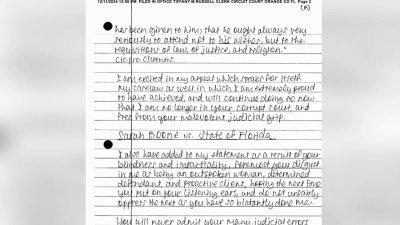 12/11/2024 12:50 PM FILED IN OFFICE TIFFANY M RUSSELL CLERK CIRCUIT COURT ORANGE CO FL Page 2
has been given to him; that he ought always very
seriously to attend not to his wishes, but to the
requisitions of law, of justice, and religion."
Cic. pro Cluentis.
I am excited in my appeal which speaks for itself.
My caselaw as well in which I am extremely proud
to have achieved, and will continue doing so now
that I am no longer in your corrupt court, and
free from your malevolent judicial grip.
Sarah Boone vs. State of Florida.
I also have added to my statement as a result of your
blindness and impartiality, foremost your disgust
in me as being an outspoken woman, determined
defendant, and proactive client, hoping the next time
you put on your listening ears, and do not unfairly
oppress the next as you have so blatantly done me.
You will never admit your many judicial errors